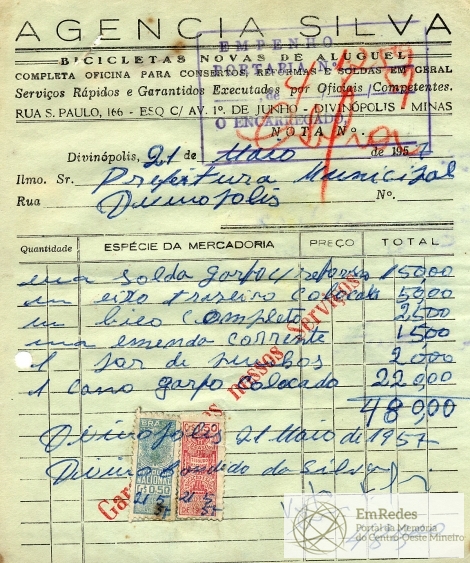 AGENCIA SILVA
BICICLETAS NOVAS DE ALUGUEL
COMPLETA OFICINA PARA CONSERTOS, REFORMAS E SOLDAS EM GERAL
Serviços Rápidos e Garantidos Executados por Oficiais Competentes.
RUA S. PAULO, 166 - ESQ C/ AV. 1º. DE JUNHO - DIVINÓPOLIS - MINAS
EMPENHO
PORTARIA N.º
de
O ENCARREGADO,
NOTA Nº
Divinópolis, 21 de Maio de 1957
Ilmo. Sr. Prefeitura Municipal
Rua Divinopolis Nº.
Quantidade ESPÉCIE DA MERCADORIA PREÇO TOTAL
uma solda garfo 15000
um eixo trazeiro colocado 5000
um bico completo 2500
uma emenda corrente 1500
1 par de 2000
1 cano garfo colocado 22000
48000
nossos serviços
Divinopolis 21 Maio de 1957
Divino Candido da Silva
NACIONAL
Cr$ 0,50
21 5 57
21 5 57
EmRedes
Portal da Memória
do Centro-Oeste Mineiro